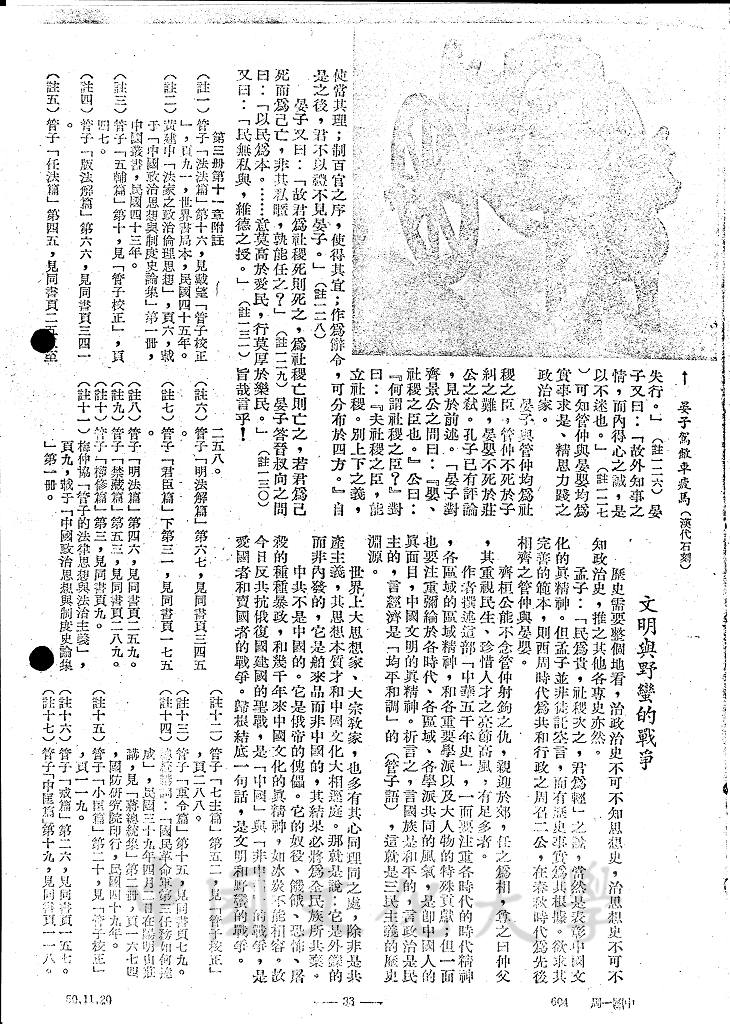 ↑ 晏子駕敝車疲馬(漢代石刻)
失行。」(註一二六)晏
子又曰:「故外知事之
情,而內得心之誠,是
以不迷也。」(註一二七
)可知管仲與晏嬰均爲
實事求是、精思力踐之
政治家。
晏子與管仲均爲社
稷之臣,管仲不死於子
糾之難,晏嬰不死於莊
公之弒。孔子已有評論
,見於前述。「晏子對
齊景公之問曰:『嬰、
社稷之臣也。』公曰:
『何謂社稷之臣?』對
曰:『夫社稷之臣,能
立社稷。別上下之義,
使當其理;制百官之序,使得其宜;作爲辭令,可分布於四方。』自
是之後,君不以禮不見晏子。」(註一二八)
晏子又曰:「故君爲社稷死則死之,爲社稷亡則亡之,若君爲己
死而爲己亡,非其私暱,孰能任之?」(註一二九)晏子答晉叔向之問
曰:「以民爲本。……意莫高於愛民,行莫厚於樂民。」(註一三〇)
又曰:「民無私與,維德之授。」(註一三一)旨哉言乎!
文明與野蠻的戰爭
歷史需要整個地看,治政治史不可不知思想史,治思想史不可不
知政治史,推之其他各專史亦然。
孟子:「民爲貴,社稷次之,君爲輕」之說,當然是表彰中國文
化的眞精神。但孟子並非徒託空言,而有歷史事實爲其根據。欲求其
完善的範本,則西周時代爲共和行政之周召二公,在春秋時代爲先後
相齊之管仲與晏嬰。
齊桓公能不念管仲射鉤之仇,親迎於郊,任之爲相,尊之曰仲父
,其重視民生、珍惜人才之亮節高風,有足多者。
作者撰述這部「中華五千年史」,一面要注重各時代的時代精神
,各區域的區域精神,和各重要學派以及大人物的特殊貢獻;但一面
也要注重彌綸於各時代、各區域、各學派共同的風氣,是卽中國人的
眞面目,中國文明的眞精神。析言之,言國族是和平的,言政治是民
主的,言經濟是「均平和調」的(管子語),這就是三民主義的歷史
淵源。
世界上大思想家、大宗敎家,也多有其心同理同之處,除非是共
產主義,其思想本質才和中國文化大相逕庭。那就是說,它是外鑠的
而非內發的,它是舶來品而非中國的,其結果必將爲全民族所共棄。
中共不是中國的。它是俄帝的傀儡。它的奴役、饑餓、恐怖、屠
殺的種種暴政,和幾千年來中國文化的眞精神,如冰炭不能相容。故
今日反共抗俄復國建國的聖戰,是「中國」與「非中國」的戰爭,是
愛國者和賣國者的戰爭。歸根結底一句話,是文明和野蠻的戰爭。
第三册第十一章附註
(註一)管子「法法篇」第十六,見戴望「管子校正
」,頁九一,世界書局本,民國四十五年。
(註二)黃建中「法家之政治倫理思想」,頁六,載
于「中國政治思想與制度史論集」第一册,
中國叢書,民國四十三年。
(註三)管子「五輔篇」第十,見「管子校正」,頁
四七。
(註四)管子「版法解篇」第六六,見同書頁三四一
。
(註五)管子「任法篇」第四五,見同書頁二五五至
二五八。
(註六)管子「明法解篇」第六七,見同書頁三四五
。
(註七)管子「君臣篇」下第三一,見同書頁一七五
。
(註八)管子「明法篇」第四六,見同書頁二五九。
(註九)管子「禁藏篇」第五三,見同書頁二八九。
(註十)管子「權修篇」第三,見同書頁九。
(註十一)梅仲協「管子的法律思想與法治主義」,
頁九,載于「中國政治思想與制度史論集
」第一册。
(註十二)管子「七主篇」第五二,見「管子校正」
,頁二八八。
(註十三)管子「重令篇」第十五,見同書頁七九。
(註十四)
成」,民國三十九年四月二日在陽明山莊
講,見「蔣總統集」第二册,頁一六七四
,國防研究院印行,民國四十九年。
(註十五)管子「小匡篇」第二十,見「管子校正」
,頁一一九。
(註十六)管子「戒篇」第二六,見同書頁一五七。
(註十七)管子「中匡篇」第十九,見同書頁一一八。
中國一周 604
— 33 —
50.11.20